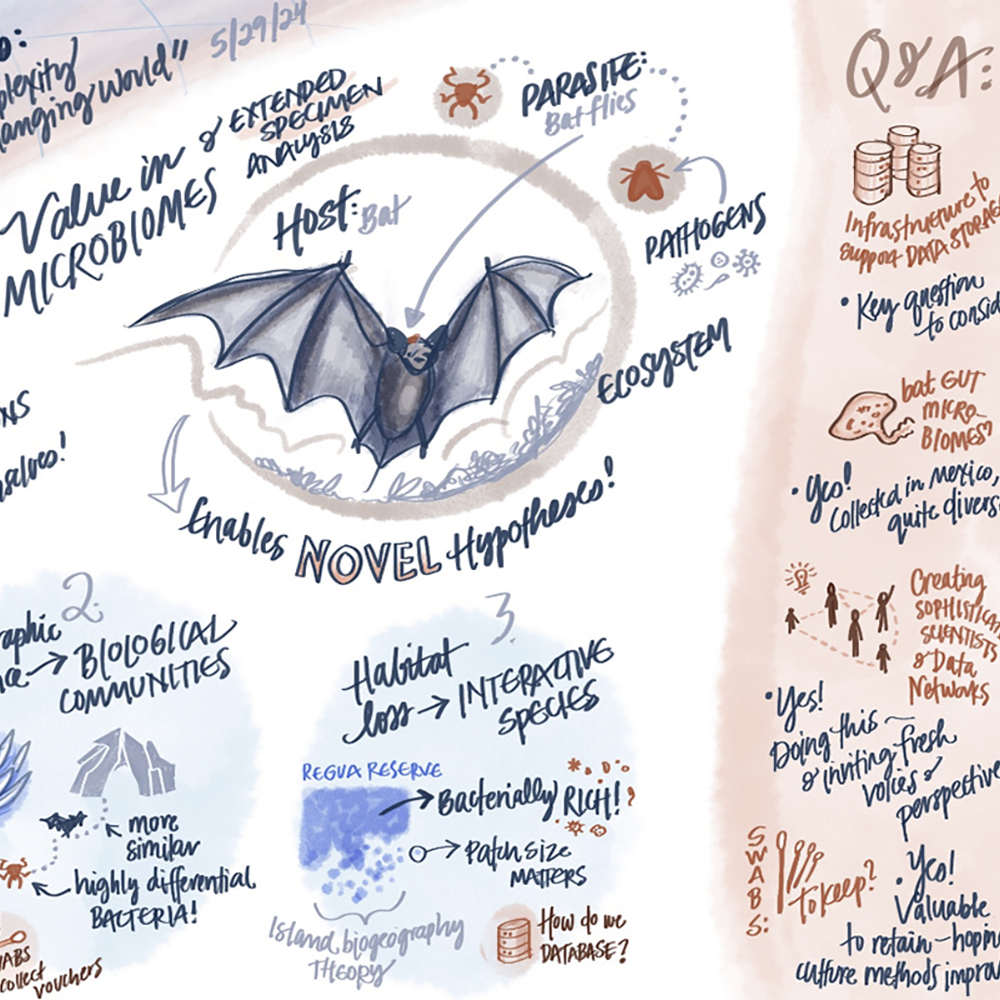 5/29/24
Value in & EXTENDED
SPECIMEN
ANALYSIS
MICROBIOMES
HOST: Bat
PARASITE:
Bat flies
PATHOGENS
ECOSYSTEM
Enables NOVEL Hypotheses!
2.
BIOLOGICAL
COMMUNITIES
more
similar
highly differential
BACTERIA!
collect
vouchers
3.
Habitat
loss → INTERACTIVE
SPECIES
REGUA RESERVE
Bacterially RICH!
Patch size
MATTERS
Island biogeography
THEORY
How do we
DATABASE?
Q&A:
Infrastructure to
support DATA STORAGE
• Key question
to consid
bat GUT
MICRO-
BIOMES?
• Yes!
Collected in Mexico,
quite divers
Creating
SOPHISTICA
SCIENTISTS
& Data
Networks
• Yes!
Doing this –
& inviting fresh
voices &
perspective
SWABS:
To keep?
• Yes!
Valuable
to retain – hopin
culture methods improv